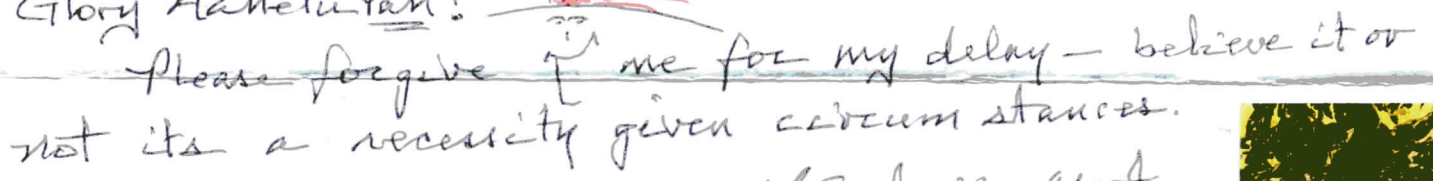 Glory Hallelujah!
Please forgive me for my delay — believe it or
not its a necessity given circumstances.